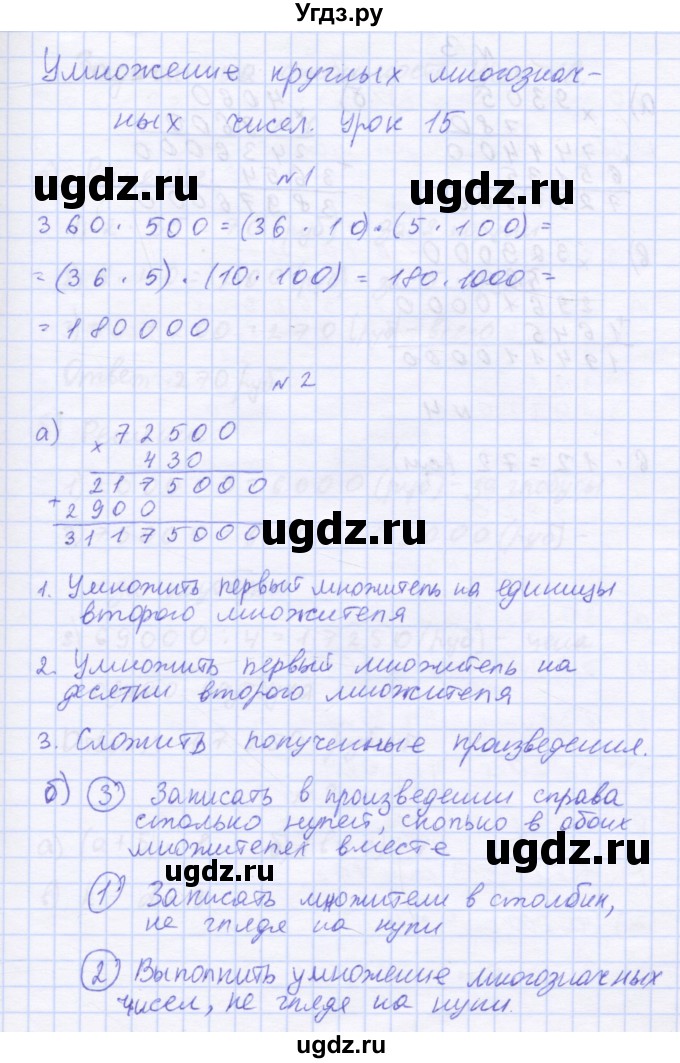 Угдз.ру
Умножение круглых многознач-
ных чисел. Урок 15
ugdz.ru ugdz.ru
№1
360 · 500 = (36 · 10) · (5 · 100) =
= (36 · 5) · (10 · 100) = 180 · 1000 =
= 180000
№2
а) 72500
× 430
2175000
+ 2900
31175000
ugdz.ru
1. Умножить первый множитель на единицы
второго множителя
2. Умножить первый множитель на
десятки второго множителя
3. Сложить полученные произведения.
б) 3) Записать в произведении справа
столько нулей, сколько в обоих
множителях вместе
ugdz.ru ugdz.ru
1) Записать множители в столбик,
не глядя на нули
2) Выполнить умножение многозначных
чисел, не глядя на нули.
ugdz.ru